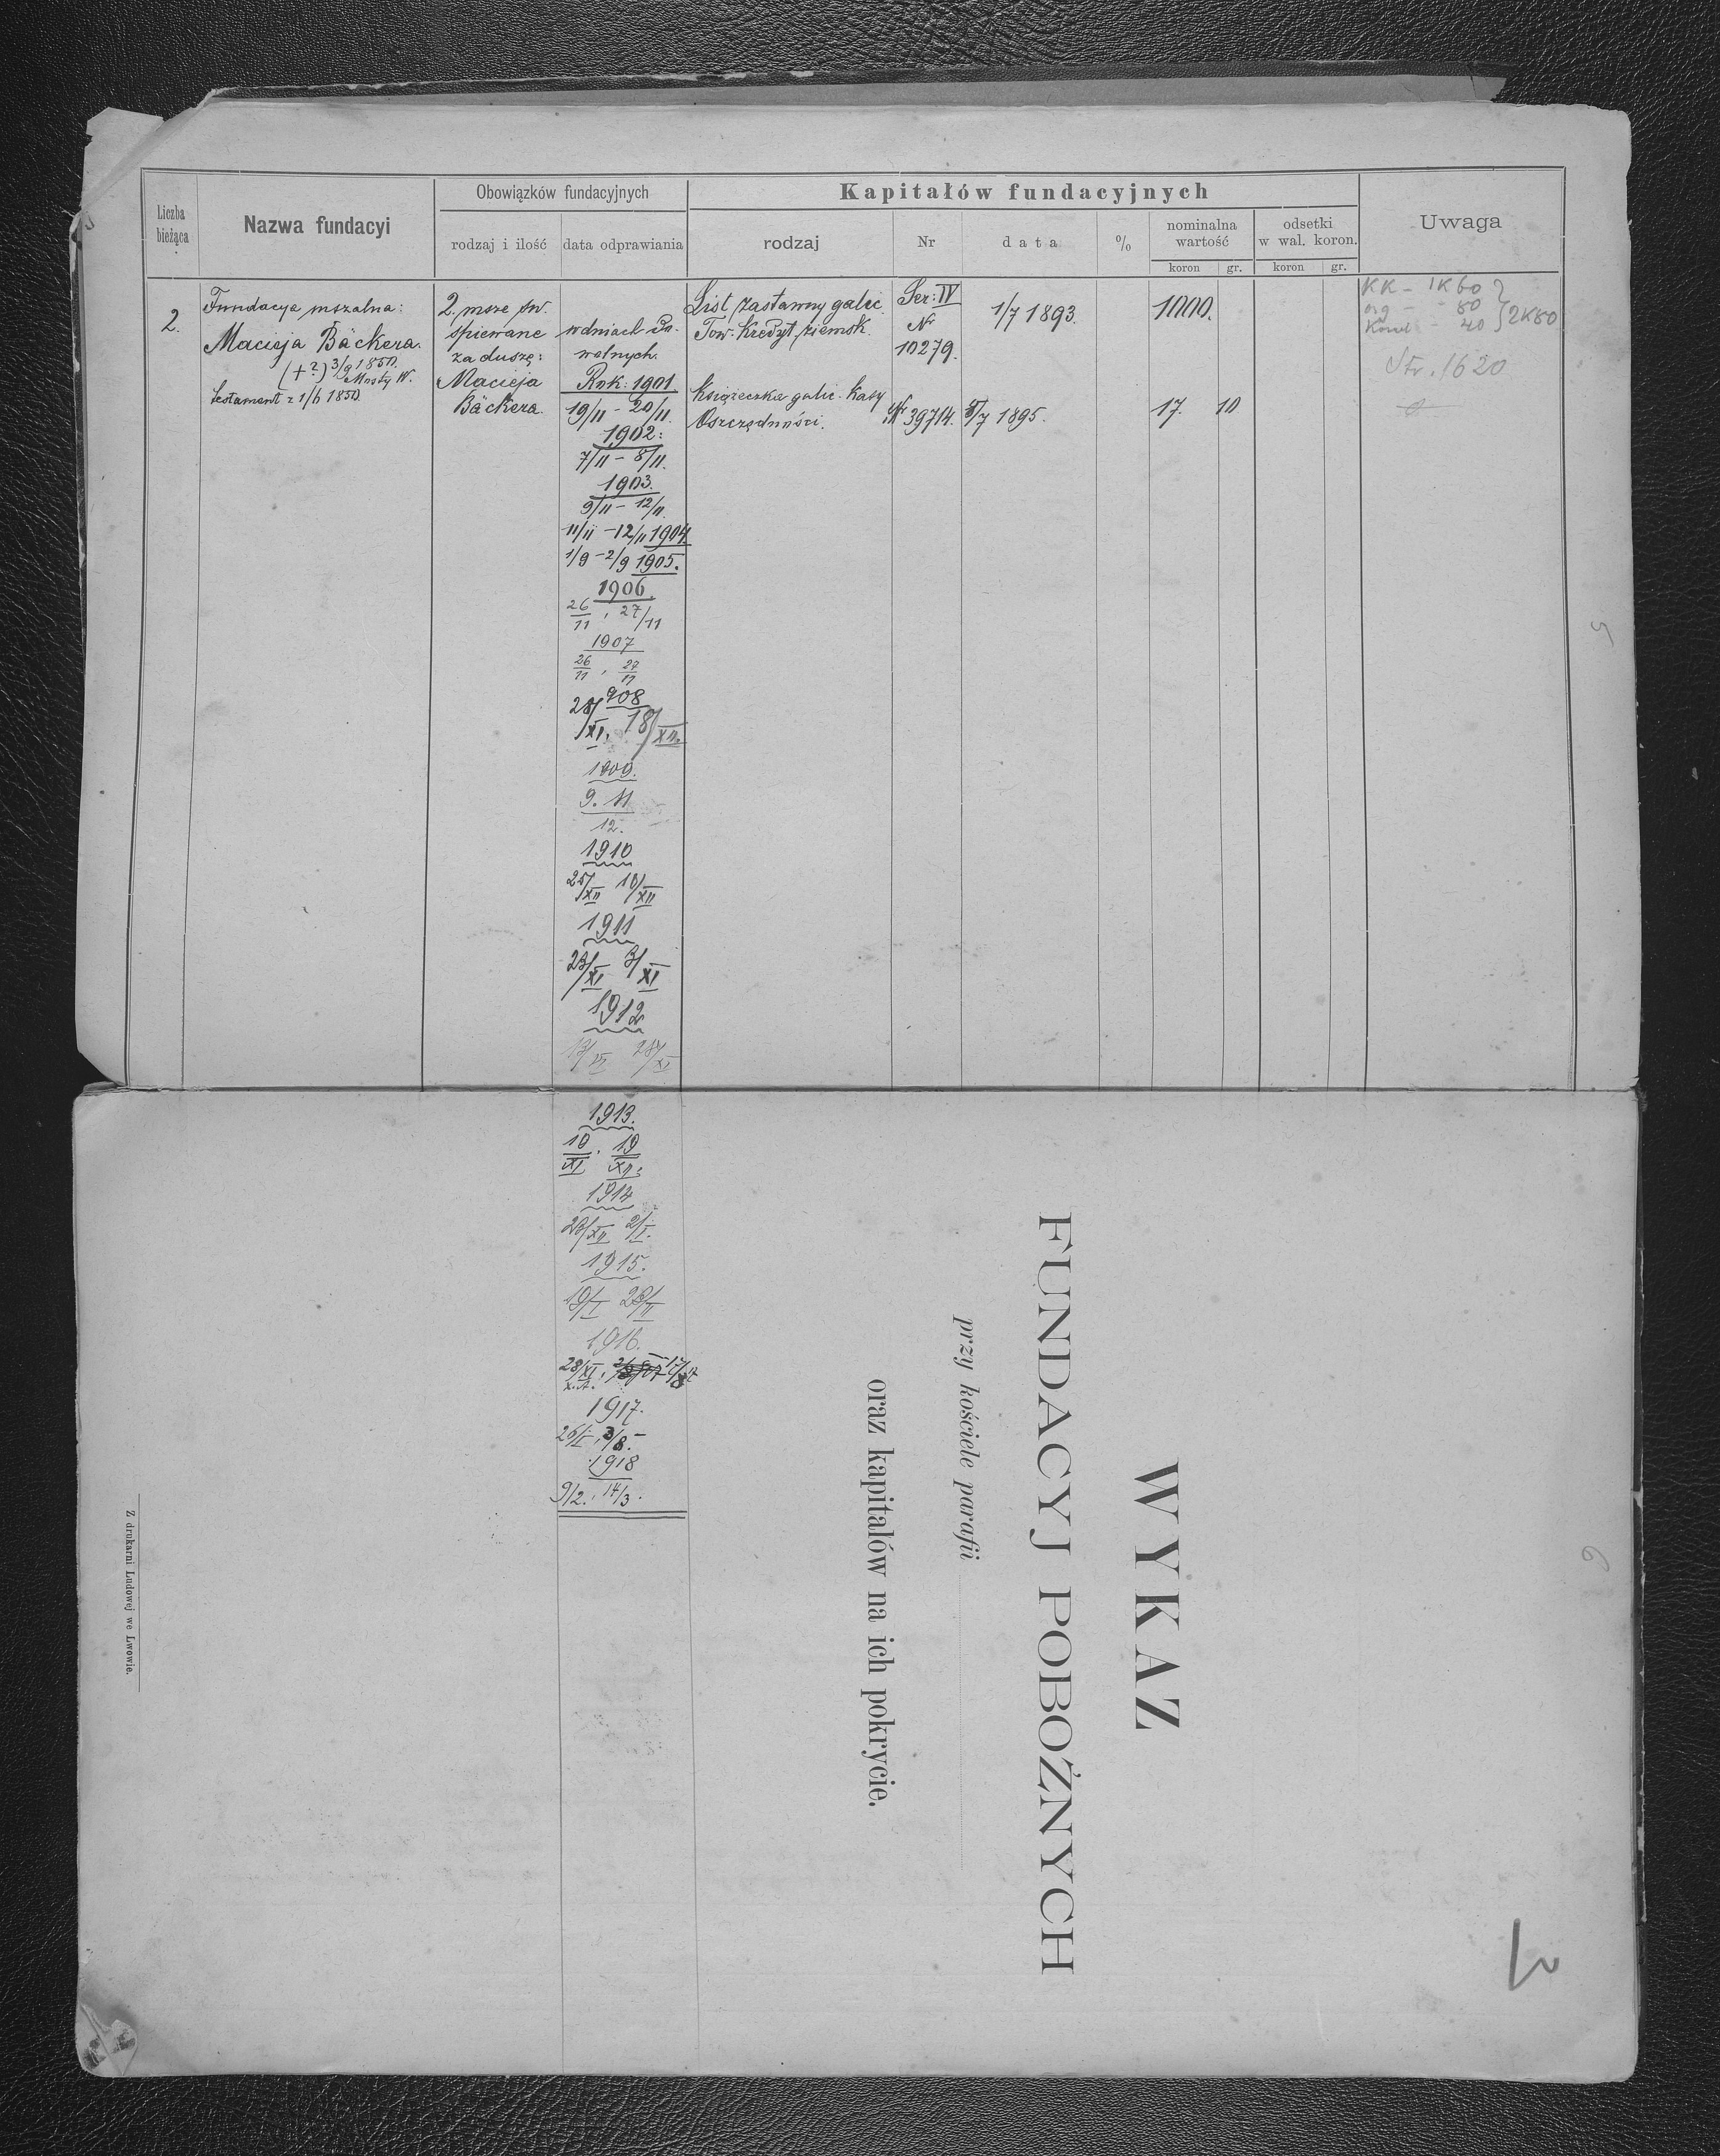 Liczba bieżąca
Nazwa fundacyi
Obowiązków fundacyjnych
rodzaj i ilość
data odprawiania
Kapitałów fundacyjnych
rodzaj
Nr
data
%
nominalna wartość
koron gr.
odsetki w wal. koron.
koron gr.
Uwaga
2.
Fundacya mszalna:
Macieja Bäckera.
(+?) 3/9 1850.
Mosty W.
testament z 1/6 1850.
2. msze św.
śpiewane
za duszę:
Macieja
Bäckera.
w dniach do-
wolnych.
Rok: 1901.
19/11 - 20/11.
1902:
7/11 - 8/11.
1903.
9/11 - 12/11.
11/11 - 12/11 1904.
1/9 - 2/9 1905.
1906.
26/11, 27/11
1907
26/11, 27/11
908
28/XI. 18/XII.
1909.
9. 11
12.
1910
25/XII 10/XII
1911
23/XI 3/XI
1912
28/XI
List zastawny galic.
Tow. Kredyt. ziemsk.
Ser: IV
Nr
10279.
1/7 1893.
1000.
Książeczka galic. Kasy
Oszczędności.
Nr 39714.
5/7 1895.
17. 10
KK - 1K 60
org - - 80
- 40
2K80
Str. 1620
1913.
10/XI. 19/XII.
1914
23/XII 2/I.
1915.
19/I 23/II
1916.
28/XI.
1917.
26/I, 3/8.-
1918
9/2., 14/3.
WYKAZ
FUNDACYJ POBOŻNYCH
przy kościele parafii
oraz kapitałów na ich pokrycie.
Z drukarni Ludowej we Lwowie.